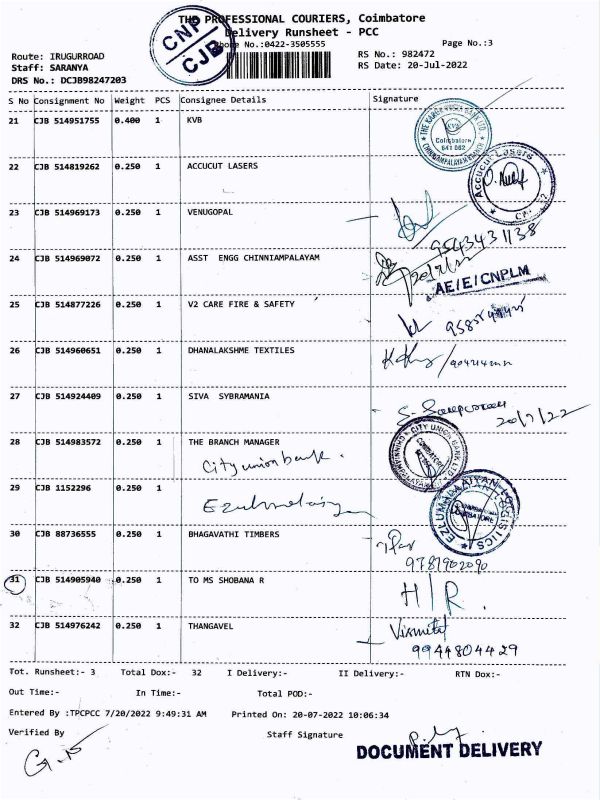 THE PROFESSIONAL COURIERS, Coimbatore
Delivery Runsheet - PCC
Phone No:0422-3505555
Page No.:3
CNP
CJB
Route: IRUGURROAD
RS No.: 982472
Staff: SARANYA
RS Date: 20-Jul-2022
DRS No.: DCJB98247203
S No Consignment No Weight PCS Consignee Details Signature
21 CJB 514951755 0.400 1 KVB
Coimbatore
641 062
22 CJB 514819262 0.250 1 ACCUCUT LASERS
Accucut Lasers
23 CJB 514969173 0.250 1 VENUGOPAL
9543431138
24 CJB 514969072 0.250 1 ASST ENGG CHINNIAMPALAYAM
AE/E/CNPLM
25 CJB 514877226 0.250 1 V2 CARE FIRE & SAFETY
26 CJB 514960651 0.250 1 DHANALAKSHME TEXTILES
27 CJB 514924409 0.250 1 SIVA SYBRAMANIA
20/7/22
28 CJB 514983572 0.250 1 THE BRANCH MANAGER
City union bank.
CITY UNION BANK LTD
29 CJB 1152296 0.250 1
EZHUMALAIYAN LOGISTICS
30 CJB 88736555 0.250 1 BHAGAVATHI TIMBERS
9787902090
31 CJB 514905940 0.250 1 TO MS SHOBANA R
H/R.
32 CJB 514976242 0.250 1 THANGAVEL
9944804429
Tot. Runsheet:- 3 Total Dox:- 32 I Delivery:- II Delivery:- RTN Dox:-
Out Time:- In Time:- Total POD:-
Entered By :TPCPCC 7/20/2022 9:49:31 AM Printed On: 20-07-2022 10:06:34
Verified By Staff Signature
DOCUMENT DELIVERY